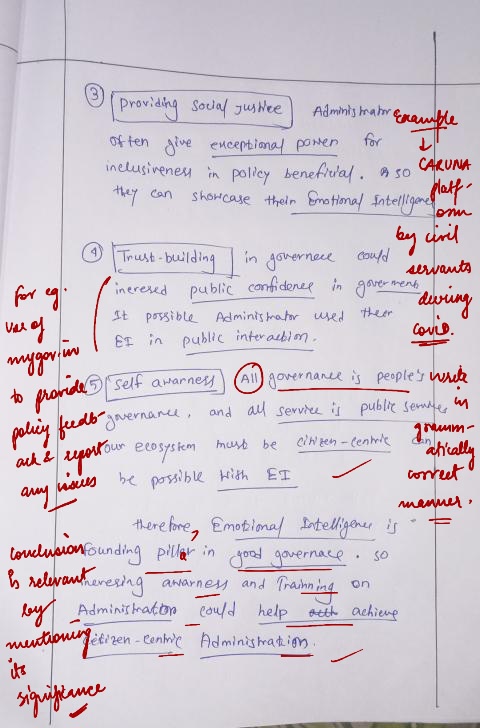 ③ Providing Social Justice Administrator
often give exceptional power for
inclusiveness in policy beneficial. so
they can showcase their Emotional Intelligence
Example
↓
CARUNA
platf-
orm
by civil
servants
during
covid.
④ Trust-building in governece could
incresed public confidence in goverment
It possible Administrator used their
EI in public interaction.
for eg.
use of
mygov.in
to provide
policy feedb-
ack & report
any issues
⑤ Self awarness All governance is people's
governance, and all service is public services
our ecosystem must be citizen-centric can
be possible with EI
write
in
gramm-
atically
correct
manner.
therefore, Emotional Intelligence is
founding pillar in good governace. so
incresing awarness and Trainning on
Administrator could help achieve
citizen-centric Administration.
conclusion
is relevant
by
mentioning
its
significance